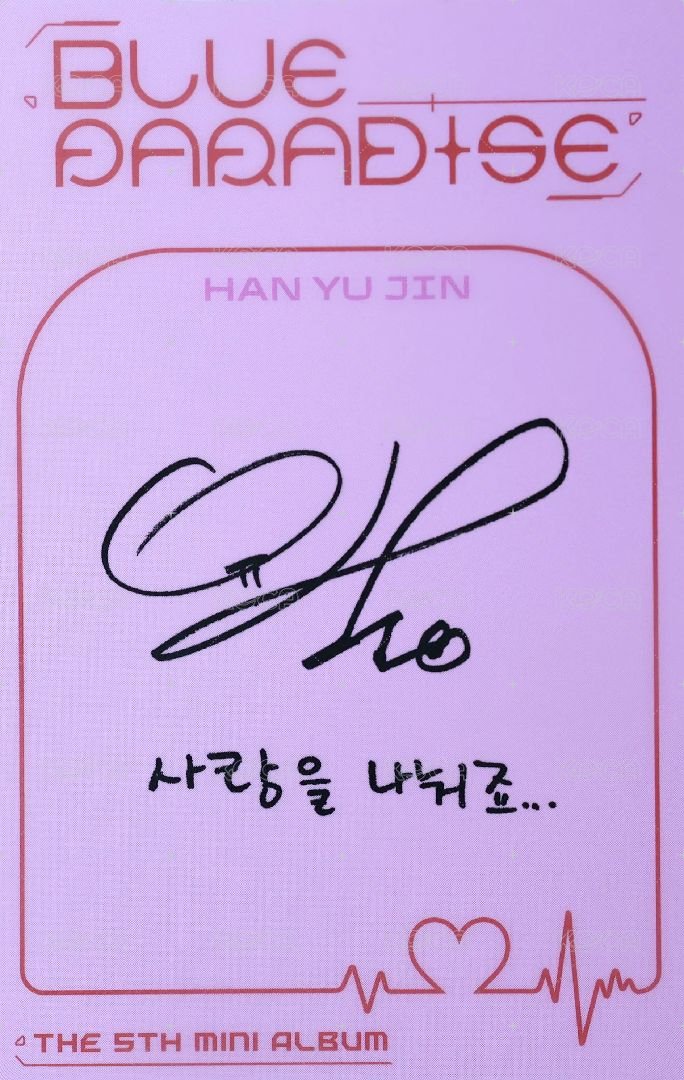 BLUE
PARADISE
HAN YU JIN
사랑을 나눠죠...
THE 5TH MINI ALBUM